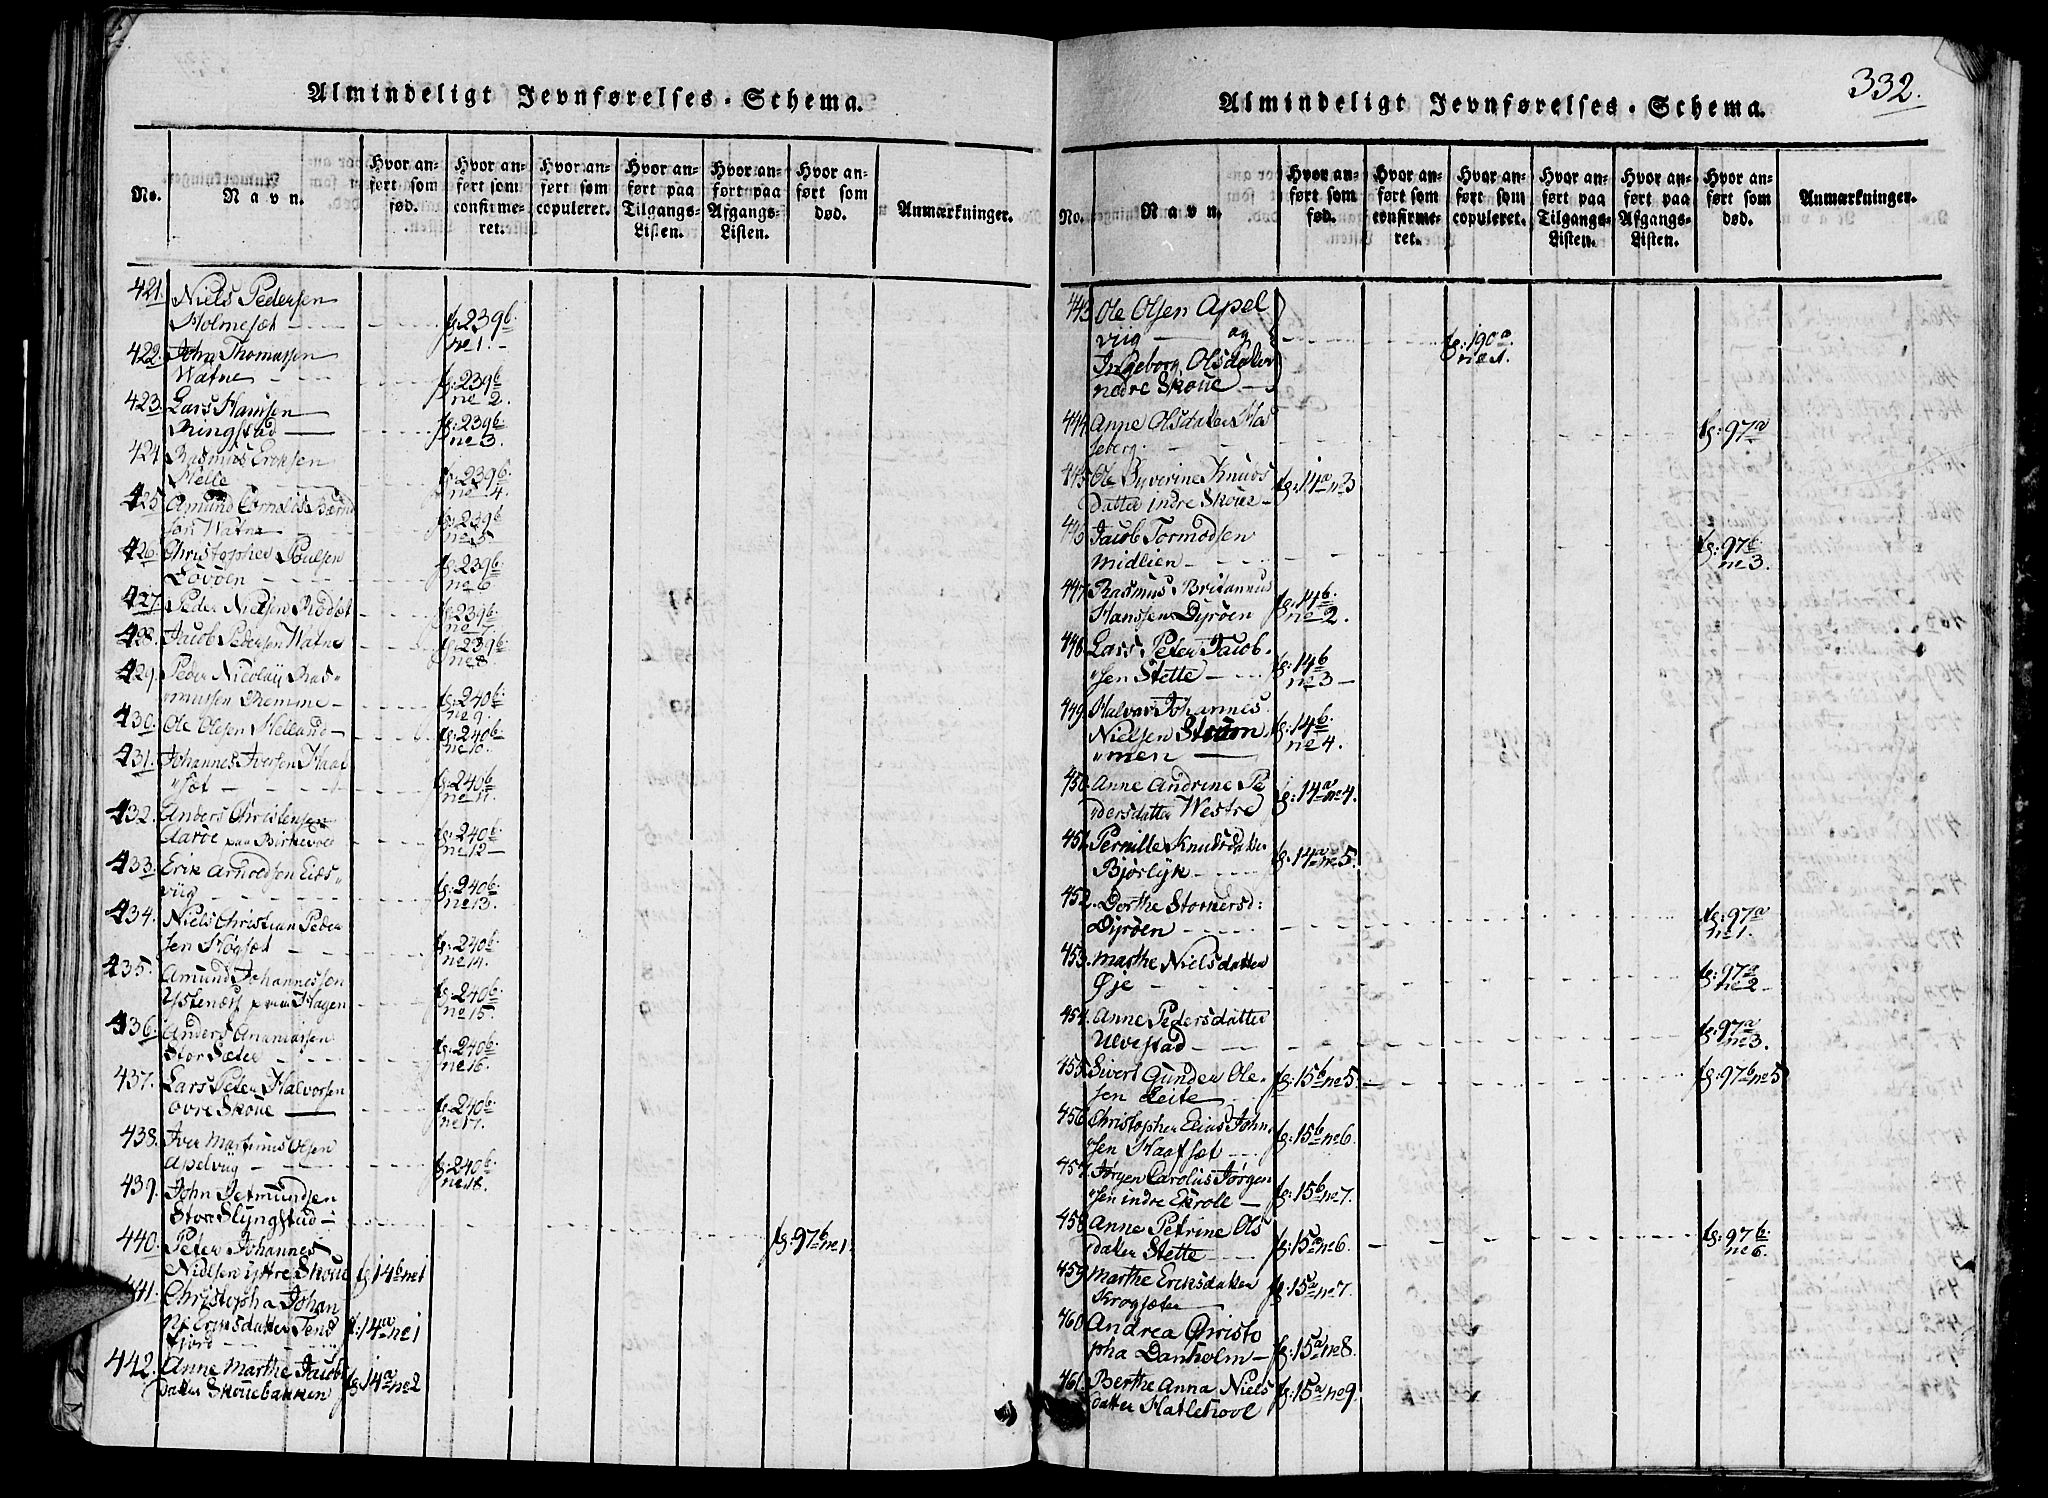 332.
Almindeligt Jevnførelses-Schema.
No.
Navn.
Hvor an-
ført som
fød.
Hvor an-
ført som
confirme-
ret.
Hvor an-
ført som
copuleret.
Hvor an-
ført paa
Tilgangs-
Listen.
Hvor an-
ført paa
Afgangs-
Listen.
Hvor an-
ført som
død.
Anmærkninger.
421. Niels Pedersen
Holmesæt fg: 239b
no 1.
422. John Thomassen
Watne fg: 239b
no 2.
423. Lars Hansen
Ringstad fg: 239b
no 3.
424 Rasmus Eriksen
Melle fg: 239b
no 4.
425. Amund Cornelis Bærnd
sen Watne fg: 239b
no 5.
426. Christopher Poulsen
Løvøen fg: 239b
no 6
427. Peder Nielsen Rødsæt fg: 239b
no 7.
428. Jacob Pedersen Watne fg: 239b
no 8.
429. Peder Nicolaij Ras„
mussen Bremme fg: 240b
no 9.
430. Ole Olsen Helland fg: 240b
no 10.
431. Johannes Iversen Haaf
„sæt fg: 240b
no 11.
432. Anders Christensen
Aarøe paa Birkevold fg: 240b
no 12
433. Erik Arnedsen Eids„
viig fg: 240b
no 13.
434. Niels Christian Peder
sen Høgsæt fg: 240b
no 14.
435. Amund Johannessen
Ystenæs paa Hagen fg: 240b
no 15.
436. Anders Ananiassen
Stor Sæter fg: 240b
no 16.
437. Lars Peter Halvorsen
Øvre Skoue fg: 240b
no 17.
438. Iver Martinus Olsen
Apelviig fg: 240b
no 18.
439. John Jetmundsen
Store Slyngstad fg: 97b no 1
440. Peter Johannes
Nielsen yttre Skoue fg: 14b no 1
441. Christopha Johan
ne Eriksdatter Tens
fjord fg: 14a no 1
442. Anne Marthe Jacobs
datter Skouebakken fg: 14a no 2
Almindeligt Jevnførelses-Schema.
No.
Navn.
Hvor an-
ført som
fød.
Hvor an-
ført som
confirme-
ret.
Hvor an-
ført som
copuleret.
Hvor an-
ført paa
Tilgangs-
Listen.
Hvor an-
ført paa
Afgangs-
Listen.
Hvor an-
ført som
død.
Anmærkninger.
443 Ole Olsen Apel
viig og fg: 190a
no 1.
Ingeborg Olsdatter
nedre Skoue
444. Anne Olsdatter
seberg fg: 97a
445. Ole Syverine Knuds
datter indre Skoue fg: 14a no 3
446. Jacob Tormodsen
Midlien fg: 97b
no 3.
447. Rasmus Britannus
Hanssen Dyrøen fg: 14b
no 2.
448. Lars Peter Jacob
„sen Stette fg: 14b
no 3
449. Halvar Johannes
Nielsen Strøm
„men fg: 14b
no 4.
450. Anne Andrine Pe
dersdatter Westre fg: 14a no 4.
451. Pernille Knudsdatter
Bjørlyk fg: 14a no 5.
452. Dorthe Storkersd:
Dyrøen fg: 97a
no 1.
453. Marthe Nielsdatter
Øje fg: 97a
no 2
454. Anne Pedersdatter
Ulvestad fg: 97a
no 3.
455. Sivert Gunder Ole
sen Leite fg: 15b no 5. fg: 97b no 5
456. Christopher Elias John
„sen Haafsæt fg: 15b no 6.
457. Jørgen Carolus Jørgen
„sen indre Ekrole fg: 15b no 7.
458. Anne Petrine Ols
datter Stette fg: 15a no 6. fg: 97b
no 6.
459. Marthe Eriksdatter
Krogsæter fg: 15a no 7.
460. Andrea Christo
pha Danholm fg: 15a no 8.
461. Berthe Anna Niels
datter Hatlehool fg: 15a no 9.